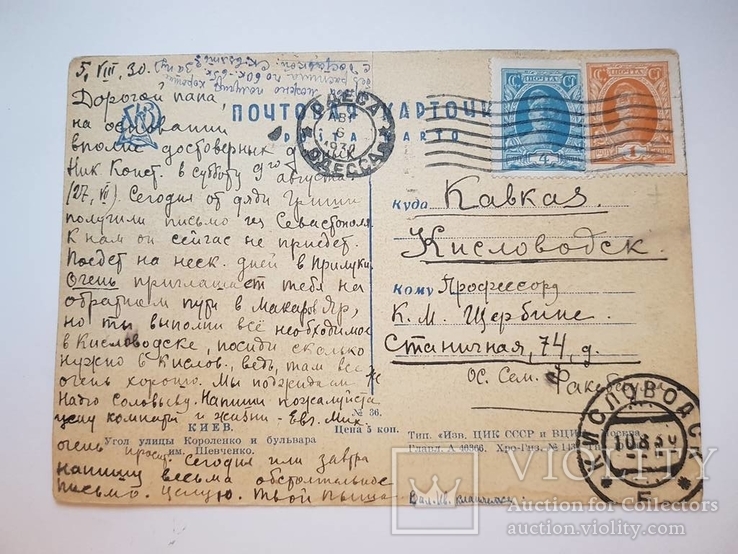 5, VIII, 30.
можно получить хороший
Дорогой папа,
на основании
вполне достоверных д
Ник. Конст. в субботу 9го августа
(27, VII). Сегодня от дяди Гриши
получили письмо из Севастополя
К нам он сейчас не приедет.
Поедет на неск. дней в Прилуки.
Очень приглашает тебя на
обратном пути в Макаров Яр,
но ты выполни всё необходимое
в Кисловодске, посиди сколько
нужно в Кислов., ведь, там все
очень хорошо. Мы поджидаем
Надю Соловьеву. Напиши пожалуйста
цену комнаты и жизни - Евг. Мих.
очень просит. Сегодня или завтра
напишу весьма обстоятельное
письмо. Целую. Твой
ПОЧТОВАЯ КАРТОЧК
CARTO
ОДЕССА
6
1930
ОДЕССА
ПОЧТА
ПОЧТА
Куда Кавказ
Кисловодск.
Кому Профессору
К. М. Щербине.
Станичная, 74, д.
№ 36.
КИЕВ.
Цена 5 коп.
Угол улицы Короленко и бульвара
им. Шевченко.
Тип. «Изв. ЦИК СССР и ВЦИК» Москва
КИСЛОВОДСК
10.8.30
VIOLITY
Auction for Collectors
auction.violity.com